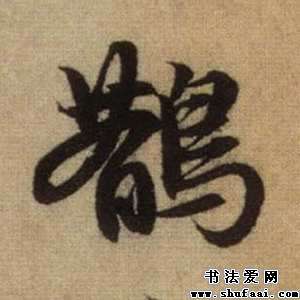 鹊
书法爱网
www.shufaai.com